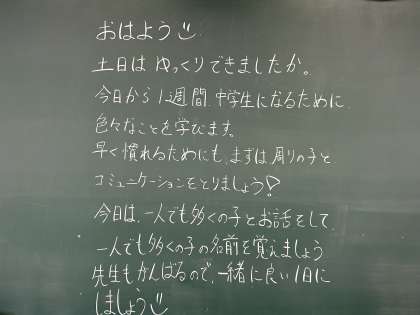 おはよう
土日は ゆっくりできましたか。
今日から 1週間、中学生になるために、
色々なことを学びます。
早く慣れるためにも、まずは周りの子と
コミュニケーションをとりましょう!
今日は、一人でも多くの子とお話をして、
一人でも多くの子の名前を覚えましょう
先生もがんばるので、一緒に良い1日に
しましょう